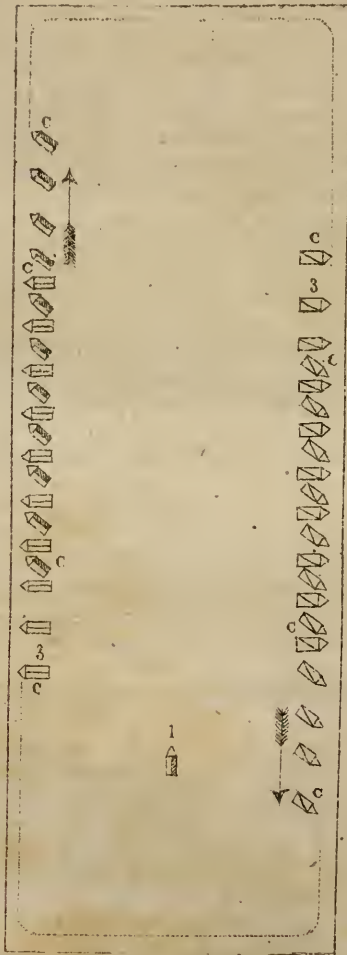 C
C
C
3
C
1
C
3
C
C
C